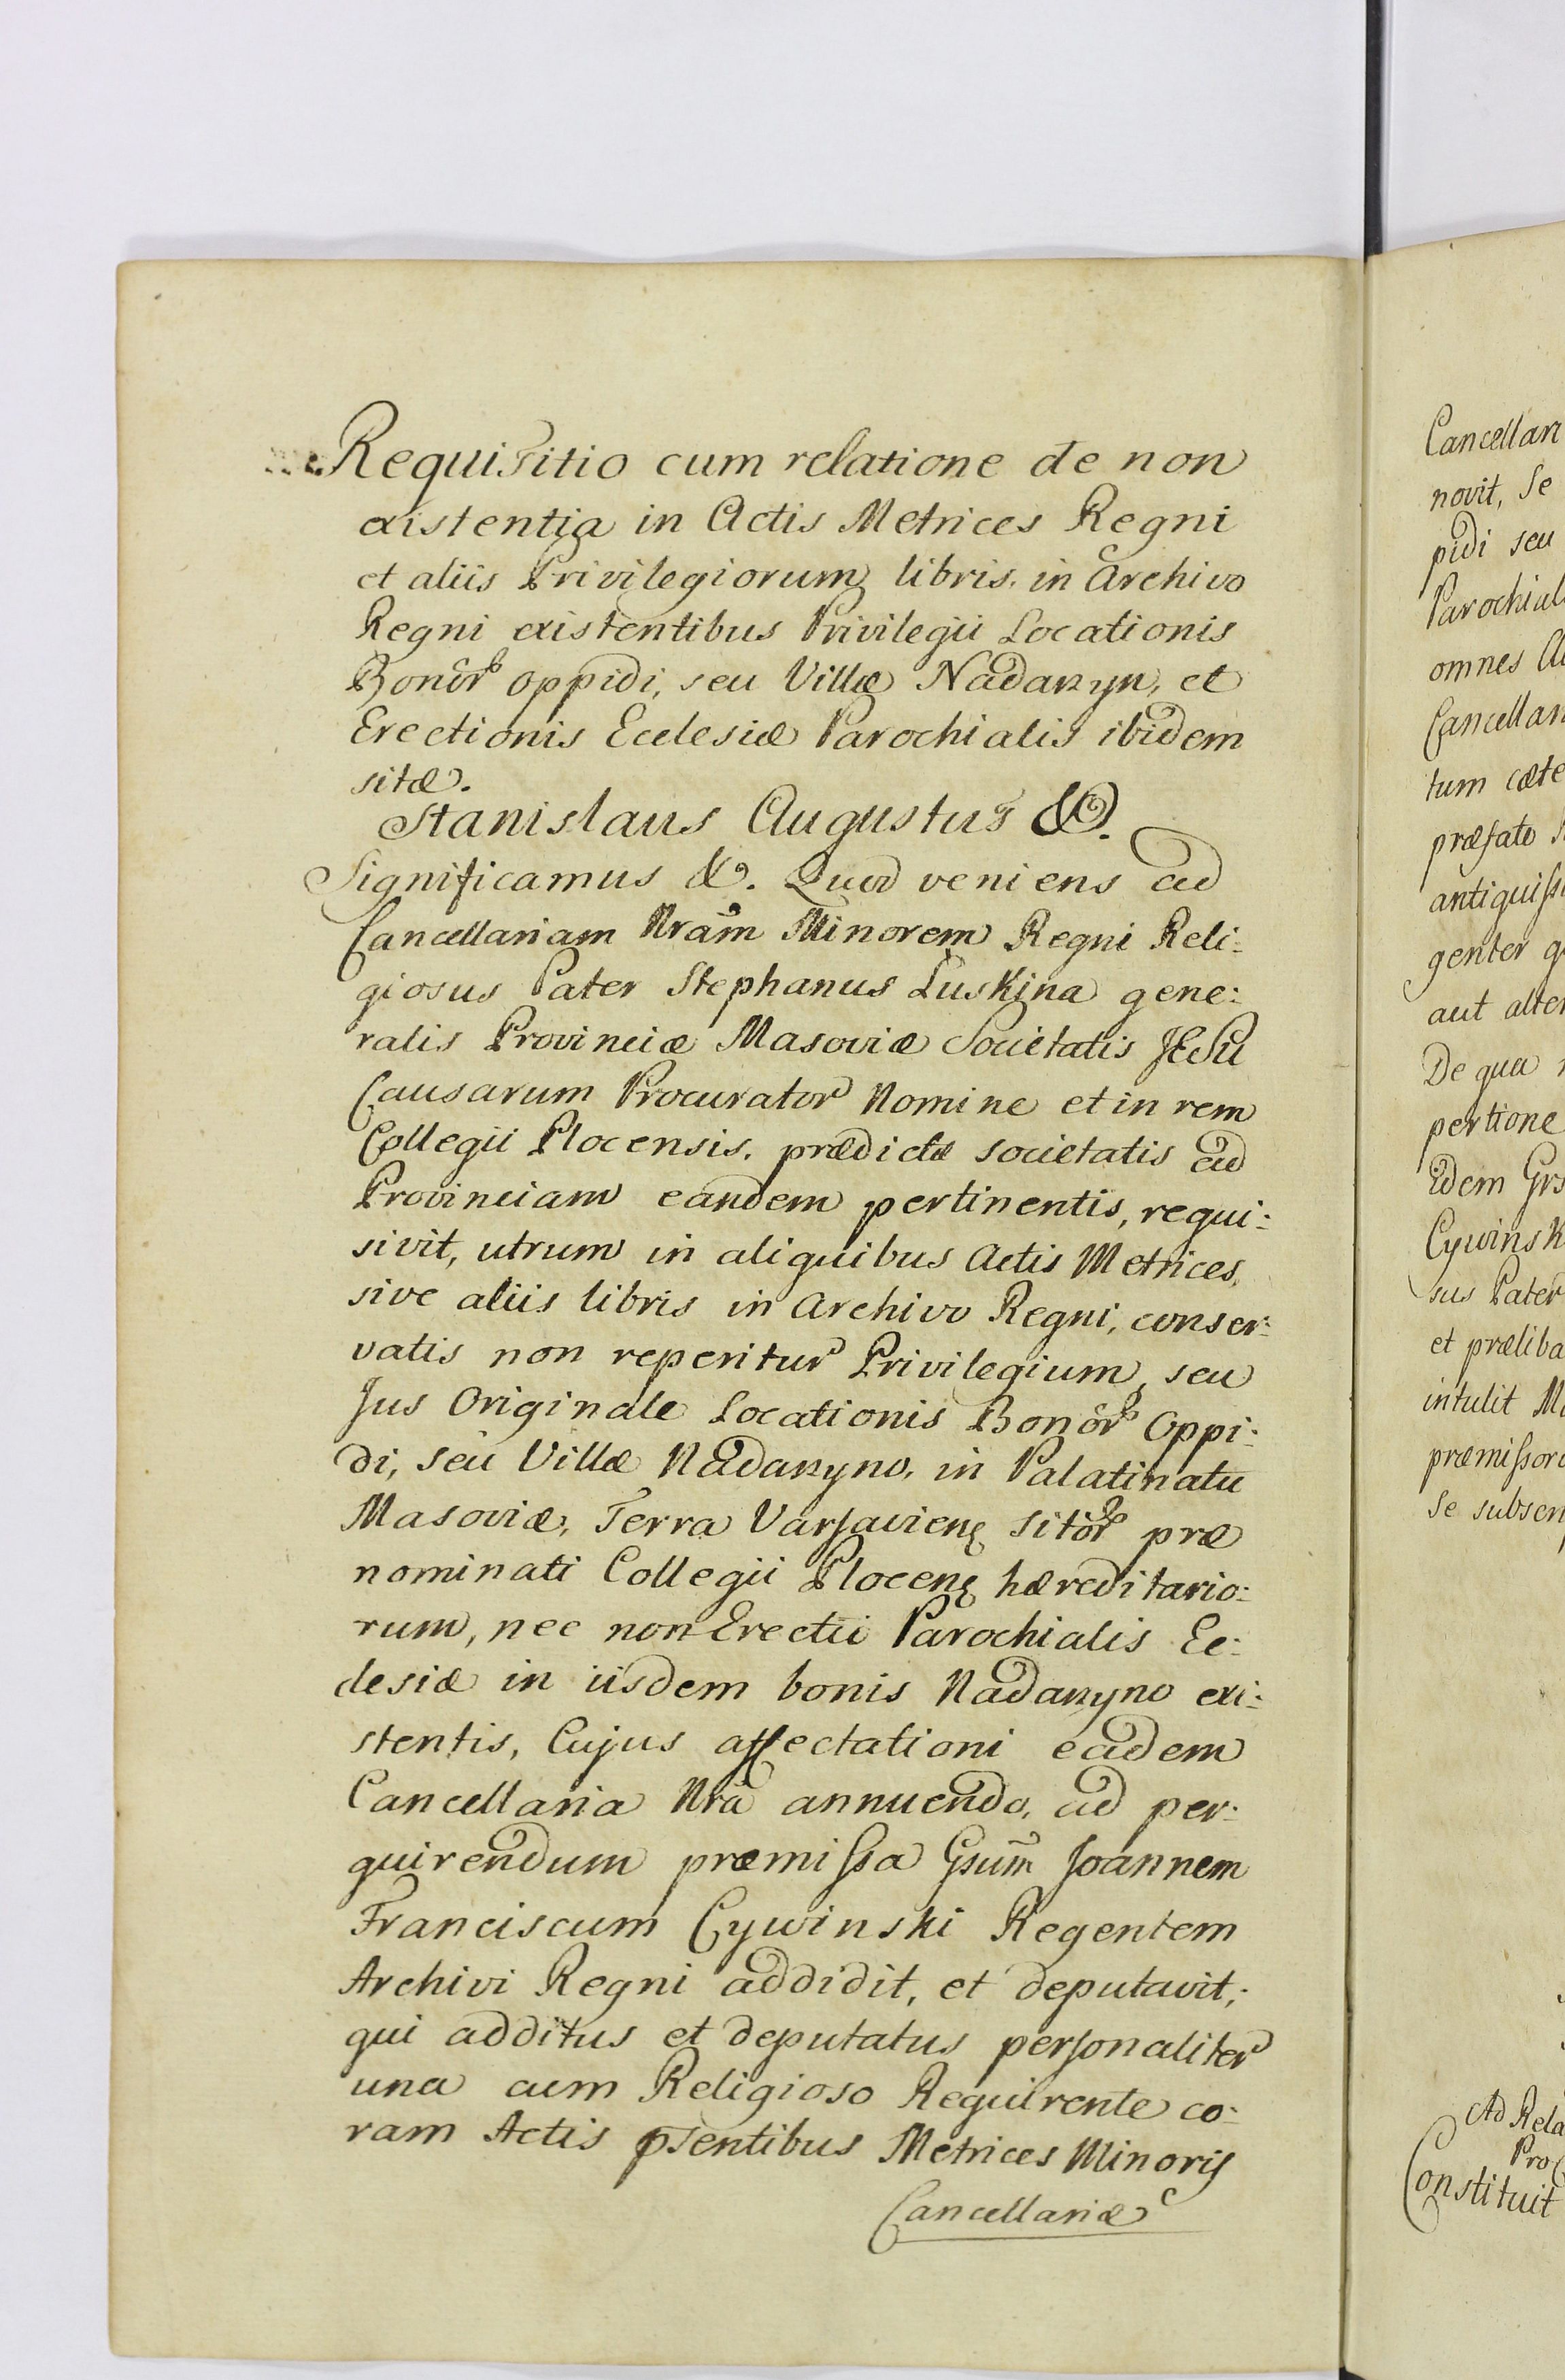 Requisitio cum relatione de non
existentia in Actis Metrices Regni
et aliis Privilegiorum libris in Archivo
Regni existentibus Privilegii Locationis
Bonor oppidi, seu Villæ Nadarzyn, et
Erectionis Ecclesiæ Parochialis ibidem
sitæ.
Stanislaus Augustus &.
Significamus &. Quod veniens ad
Cancellariam Nram Minorem Regni Reli:
giosus Pater Stephanus Łuskina gene:
ralis Provinciæ Masoviæ Societatis JESu
Causarum Procurator Nomine et in rem
Collegii Plocensis, prædictæ societatis ad
Provinciam eandem pertinentis, requi:
sivit, utrum in aliquibus Actis Metrices,
sive aliis libris in Archivo Regni, conser:
vatis non reperitur Privilegium, seu
Jus Originale Locationis Bonor Oppi:
di, seu Villæ Nadarzyno, in Palatinatu
Masoviæ, Terra Varsavien sitor præ
nominati Collegii Plocen hæreditario:
rum, nec non Erectii Parochialis Ec:
clesiæ in iisdem bonis Nadarzyno exi:
stentis, Cujus affectationi eadem
Cancellaria Nra annuendo, ad per:
quirendum præmissa Gsum Joannem
Franciscum Cywinski Regentem
Archivi Regni addidit, et deputavit,:
qui additus et deputatus personaliter
una cum Religioso Requirente co:
ram Actis psentibus Metrices Minoris
Cancellariæ
Cancellari
novit, se
pidi seu
Parochial
omnes A
Cancellari
tum cæte
præfato
antiquiss
genter
aut alter
De qua
pertione
idem Grs
Cywinsk
sus Pater
et præliba
intulit
præmissor
se subscri
Ad Rela
Pro
Constituit